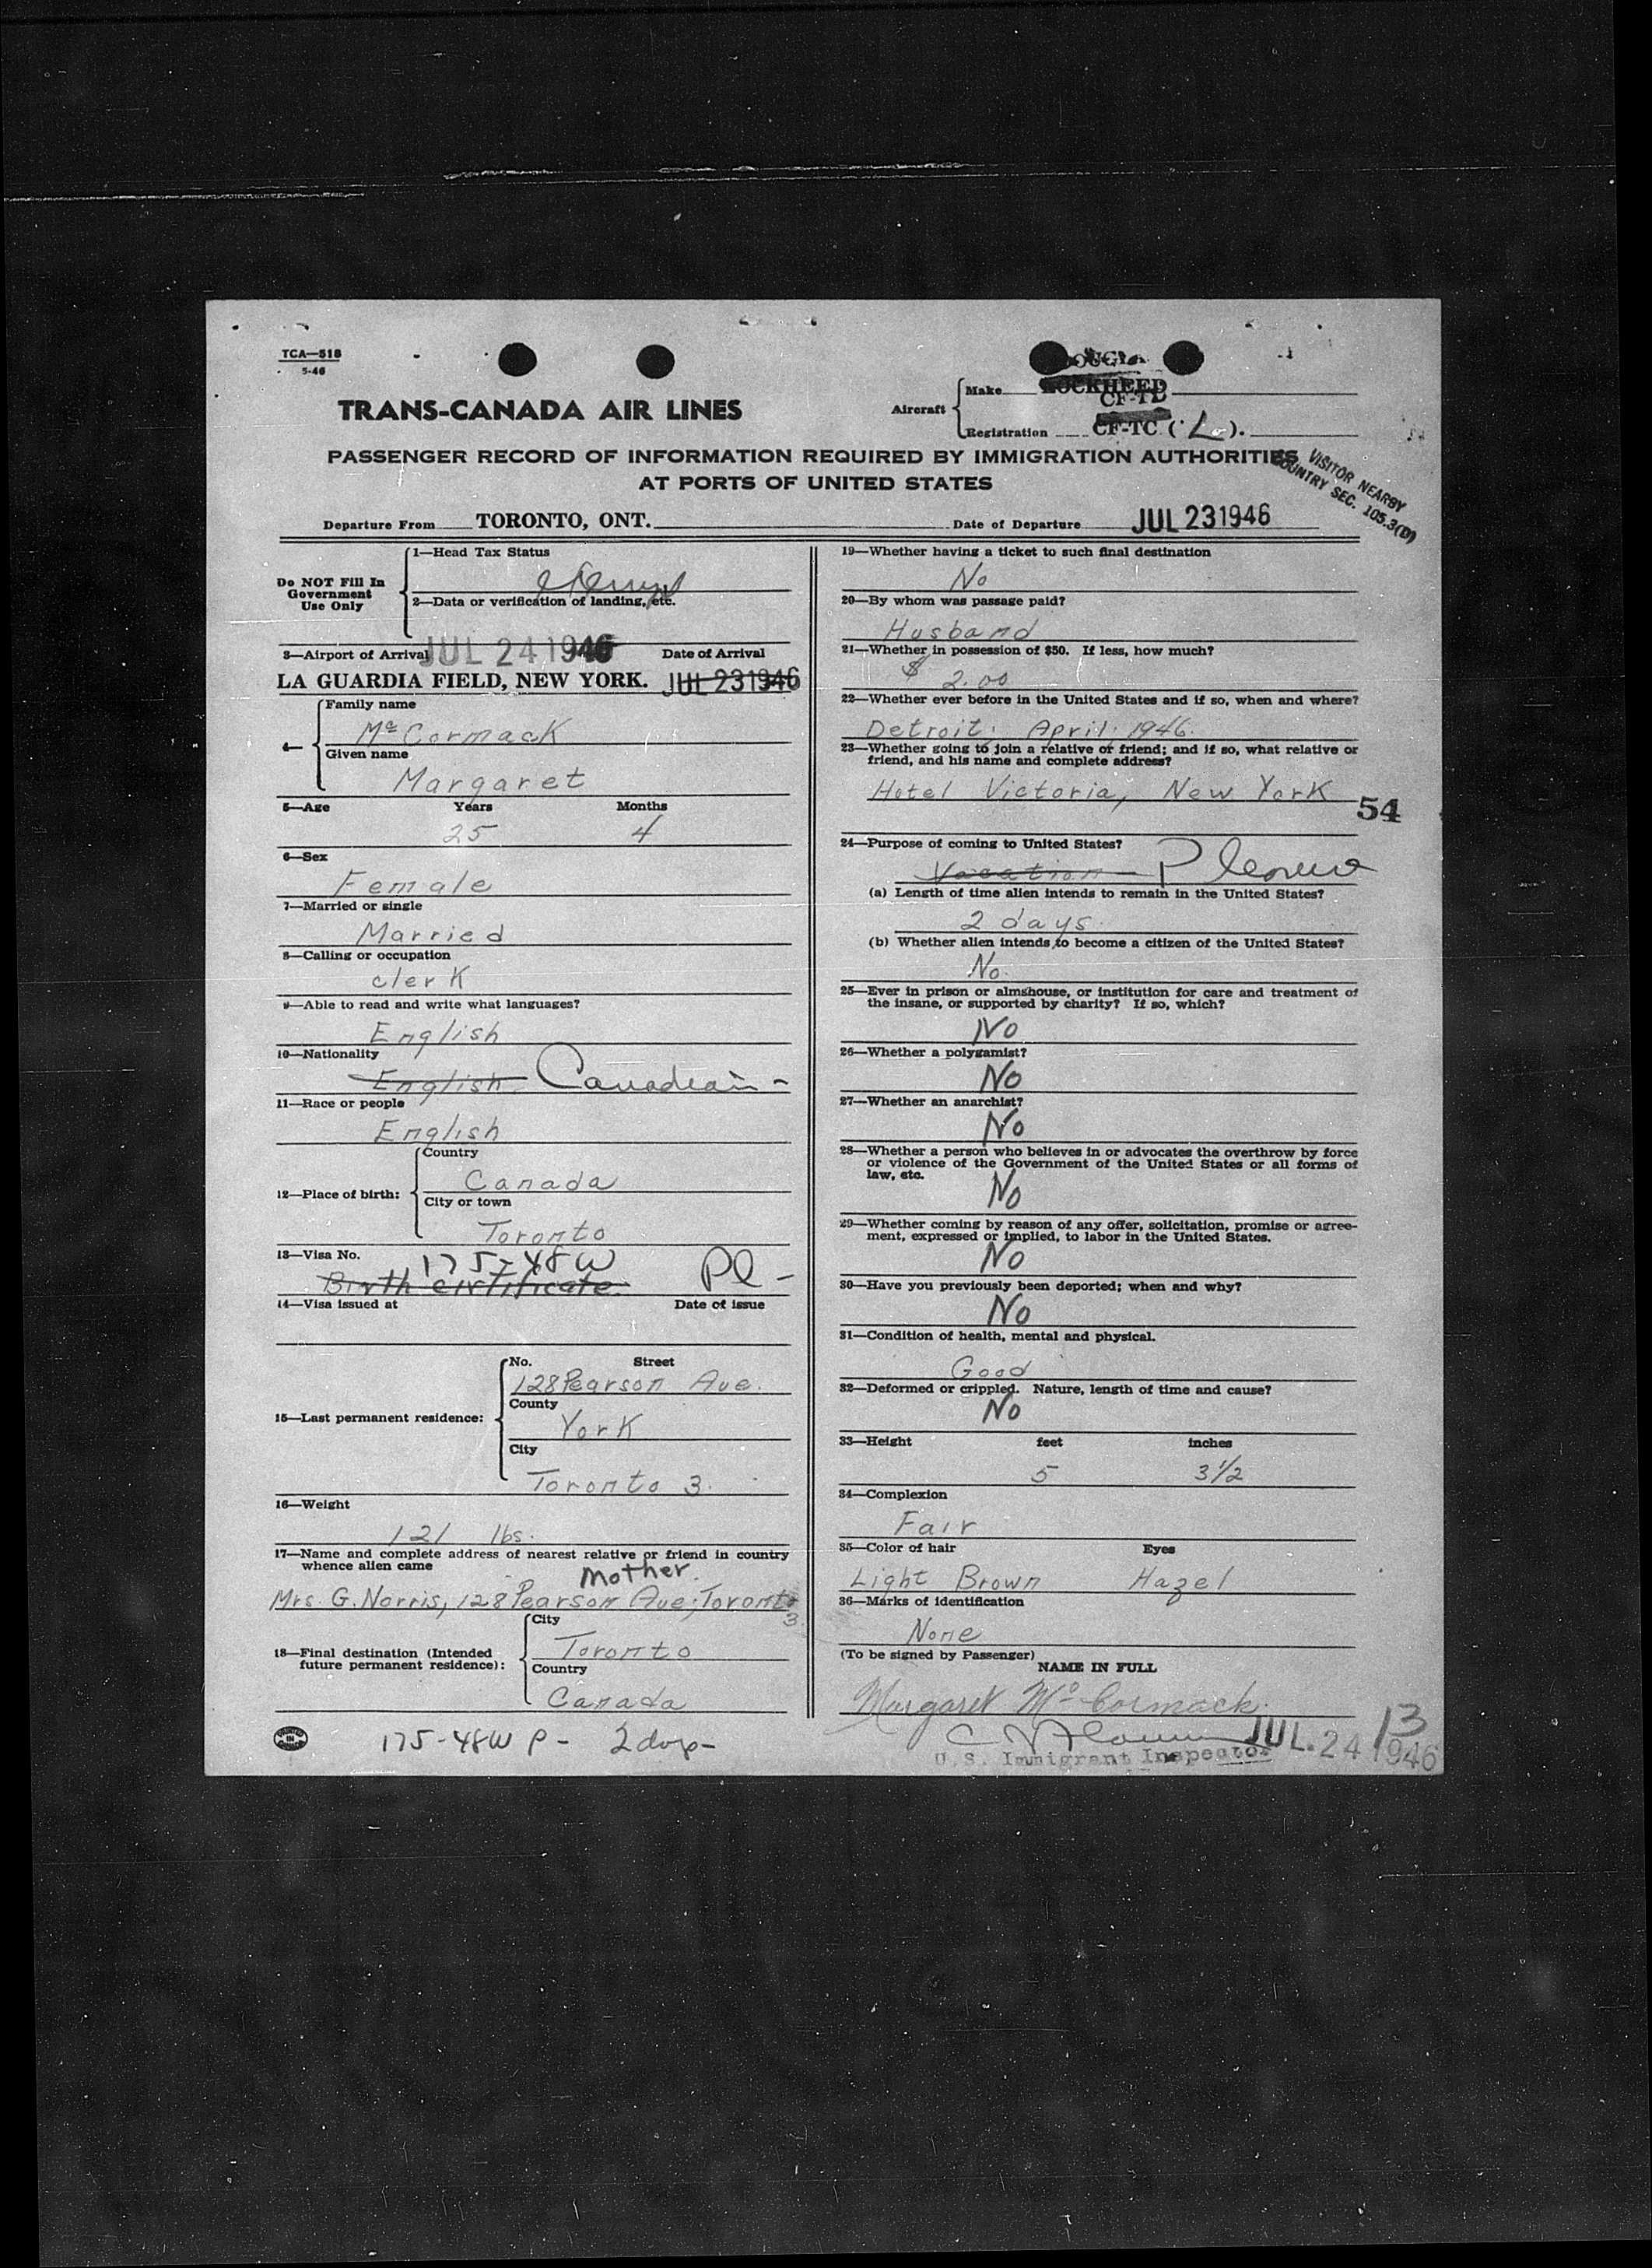 TCA—518
5-46
TRANS-CANADA AIR LINES
Aircraft
Make LOCKHEED
CF-TD
Registration CF-TC ( L ).
PASSENGER RECORD OF INFORMATION REQUIRED BY IMMIGRATION AUTHORITIES
AT PORTS OF UNITED STATES
VISITOR NEARBY
COUNTRY SEC. 105.3(D)
Departure From TORONTO, ONT. Date of Departure JUL 23 1946
Do NOT Fill In
Government
Use Only
1—Head Tax Status
2—Data or verification of landing, etc.
3—Airport of Arrival JUL 24 1946 Date of Arrival
LA GUARDIA FIELD, NEW YORK. JUL 23 1946
4—
Family name
McCormack
Given name
Margaret
5—Age Years Months
25 4
6—Sex
Female
7—Married or single
Married
8—Calling or occupation
clerk
9—Able to read and write what languages?
English
10—Nationality
English Canadian -
11—Race or people
English
12—Place of birth:
Country
Canada
City or town
Toronto
13—Visa No. 175-48W Pl -
Birth certificate
14—Visa issued at Date of issue
15—Last permanent residence:
No. Street
128 Pearson Ave.
County
York
City
Toronto 3.
16—Weight
121 lbs.
17—Name and complete address of nearest relative or friend in country
whence alien came
Mother.
Mrs. G. Norris, 128 Pearson Ave; Toronto
3
18—Final destination (Intended
future permanent residence):
City
Toronto
Country
Canada
175-48W P- 2 days-
19—Whether having a ticket to such final destination
No
20—By whom was passage paid?
Husband
21—Whether in possession of $50. If less, how much?
$ 2.00
22—Whether ever before in the United States and if so, when and where?
Detroit; April 1946.
23—Whether going to join a relative or friend; and if so, what relative or
friend, and his name and complete address?
Hotel Victoria, New York
54
24—Purpose of coming to United States?
Vacation Pleasure
(a) Length of time alien intends to remain in the United States?
2 days.
(b) Whether alien intends to become a citizen of the United States?
No.
25—Ever in prison or almshouse, or institution for care and treatment of
the insane, or supported by charity? If so, which?
No
26—Whether a polygamist?
No
27—Whether an anarchist?
No
28—Whether a person who believes in or advocates the overthrow by force
or violence of the Government of the United States or all forms of
law, etc.
No
29—Whether coming by reason of any offer, solicitation, promise or agree-
ment, expressed or implied, to labor in the United States.
No
30—Have you previously been deported; when and why?
No
31—Condition of health, mental and physical.
Good
32—Deformed or crippled. Nature, length of time and cause?
No
33—Height feet inches
5 3½
34—Complexion
Fair
35—Color of hair Eyes
Light Brown Hazel
36—Marks of identification
None
(To be signed by Passenger)
NAME IN FULL
Margaret McCormack.
13
U. S. Immigrant Inspector JUL. 24 1946